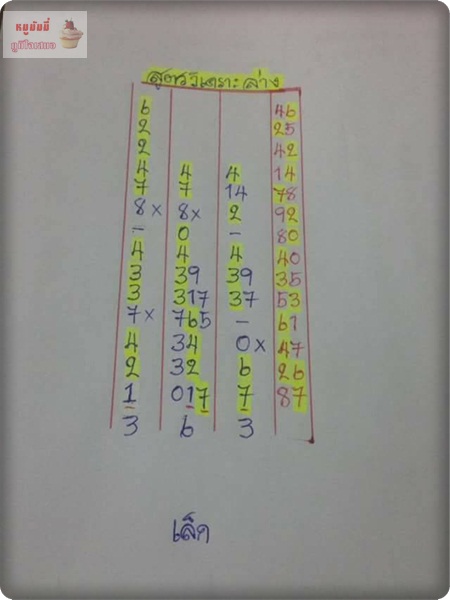 หมูมัมมี่
ภูมิใจเสนอ
สูตรวิเคราะล่าง
6 46
2 25
2 42
4 4 4 14
7 7 14 78
8x 8x 2 92
- 0 - 80
4 4 4 40
3 39 39 35
3 317 37 53
7x 765 - 61
4 34 0x 47
2 32 6 26
1 017 7 87
3 6 3
เล็ก